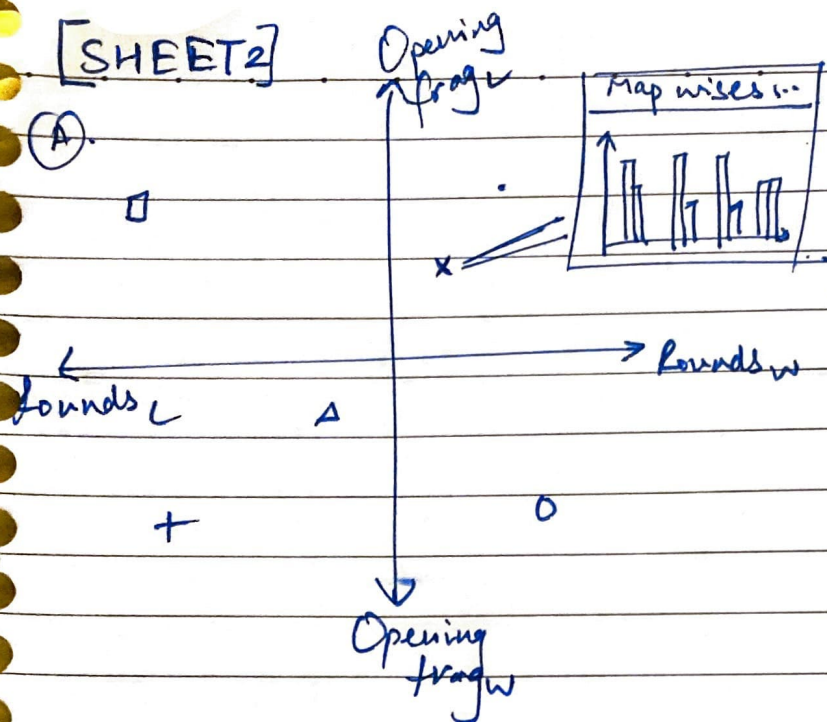 [SHEET2]
Opening
frag L
Map wises...
A.
Rounds W
Rounds L
Opening
frag W